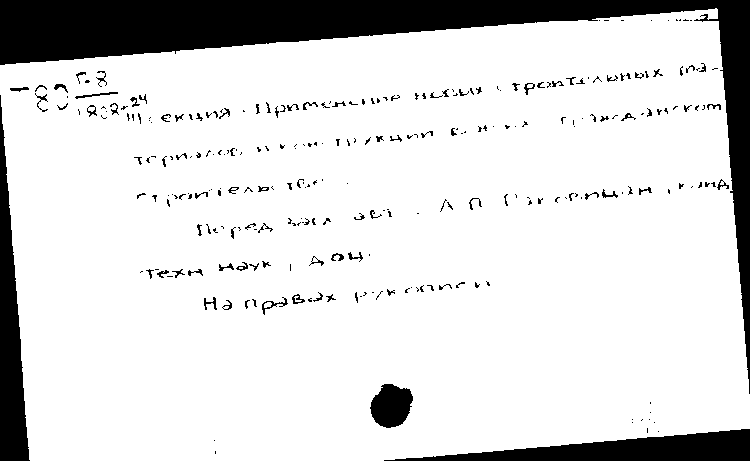 Г-8
80
1808-24
III секция. Применение новых строительных ма-
териалов и конструкций в жил. гражданском
строительстве.
Перед загл авт. А.П.
техн наук, доц.
На правах рукописи